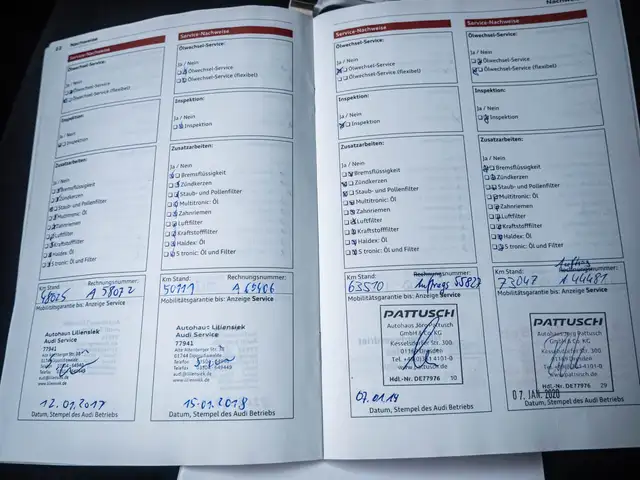 12 Nachweise
Service-Nachweise
Ölwechsel-Service:
Ja / Nein
Ölwechsel-Service
Ölwechsel-Service (flexibel)
Inspektion:
Ja / Nein
Inspektion
Zusatzarbeiten:
Ja / Nein
Bremsflüssigkeit
Zündkerzen
Staub- und Pollenfilter
Multitronic: Öl
Zahnriemen
Luftfilter
Kraftstofffilter
Haldex: Öl
S tronic: Öl und Filter
Km Stand: Rechnungsnummer:
48025 A 58072
Mobilitätsgarantie bis: Anzeige Service
Autohaus Liliensiek
Audi Service
77941
12.01.2017
Datum, Stempel des Audi Betriebs
Service-Nachweise
Ölwechsel-Service:
Ja / Nein
Ölwechsel-Service
Ölwechsel-Service (flexibel)
Inspektion:
Ja / Nein
Inspektion
Zusatzarbeiten:
Ja / Nein
Bremsflüssigkeit
Zündkerzen
Staub- und Pollenfilter
Multitronic: Öl
Zahnriemen
Luftfilter
Kraftstofffilter
Haldex: Öl
S tronic: Öl und Filter
Km Stand: Rechnungsnummer:
50111 A 69406
Mobilitätsgarantie bis: Anzeige Service
Autohaus Liliensiek
Audi Service
77941
15.01.2018
Datum, Stempel des Audi Betriebs
Service-Nachweise
Ölwechsel-Service:
Ja / Nein
Ölwechsel-Service
Ölwechsel-Service (flexibel)
Inspektion:
Ja / Nein
Inspektion
Zusatzarbeiten:
Ja / Nein
Bremsflüssigkeit
Zündkerzen
Staub- und Pollenfilter
Multitronic: Öl
Zahnriemen
Luftfilter
Kraftstofffilter
Haldex: Öl
S tronic: Öl und Filter
Km Stand: Rechnungsnummer:
63510 Auftrags
Mobilitätsgarantie bis: Anzeige Service
PATTUSCH
Autohaus Jörg Pattusch
GmbH & Co. KG
Kesselsdorfer Str. 300
01169 Dresden
www.pattusch.de
Hdl.-Nr. DE77976 10
07.01.19
Datum, Stempel des Audi Betriebs
Nachweise
Service-Nachweise
Ölwechsel-Service:
Ja / Nein
Ölwechsel-Service
Ölwechsel-Service (flexibel)
Inspektion:
Ja / Nein
Inspektion
Zusatzarbeiten:
Ja / Nein
Bremsflüssigkeit
Zündkerzen
Staub- und Pollenfilter
Multitronic: Öl
Zahnriemen
Luftfilter
Kraftstofffilter
Haldex: Öl
S tronic: Öl und Filter
Auftrag
Km Stand: Rechnungsnummer:
73047 A 44481
Mobilitätsgarantie bis: Anzeige Service
PATTUSCH
Autohaus Jörg Pattusch
GmbH & Co. KG
Kesselsdorfer Str. 300
01169 Dresden
www.pattusch.de
Hdl.-Nr. DE77976 29
07. JAN. 2020
Datum, Stempel des Audi Betriebs